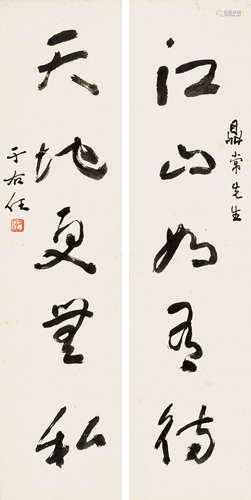 江山如有待
鼎常先生
天地更無私
于右任